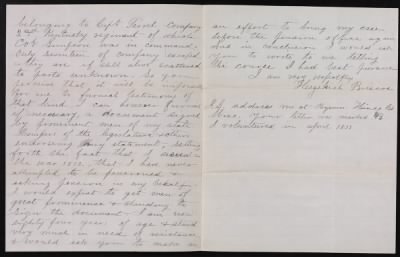 belonging to Capt Trovt, Company
2nd Kentucky regiment of which
Col Simpson was in command.
Only seventeen of company escaped
& they are if still alive scattered
to parts unknown. So you
perceive that it will be impossible
for me to furnish testimony of
that kind. I can however furnish
if necessary a document signed
by prominent men of my state
Members of the legislature & others
endorsing my statement, setting
forth the fact that I
the war 1812, that I had never
attempted to be pensioned &
asking pension in my behalf.
I would expect to get men of
great prominence & standing to
sign the document. I am now
eighty four years of age & stand
very much in need of assistance
& would ask you to make an
an effort to bring my case
before the pension office again
and in conclusion I would ask
you to write to me
the course I had best pursue.
I am very respectfully
Hezekiah Briscoe
P.S. address me at
Miss, your letter
I volunteered in April 1813